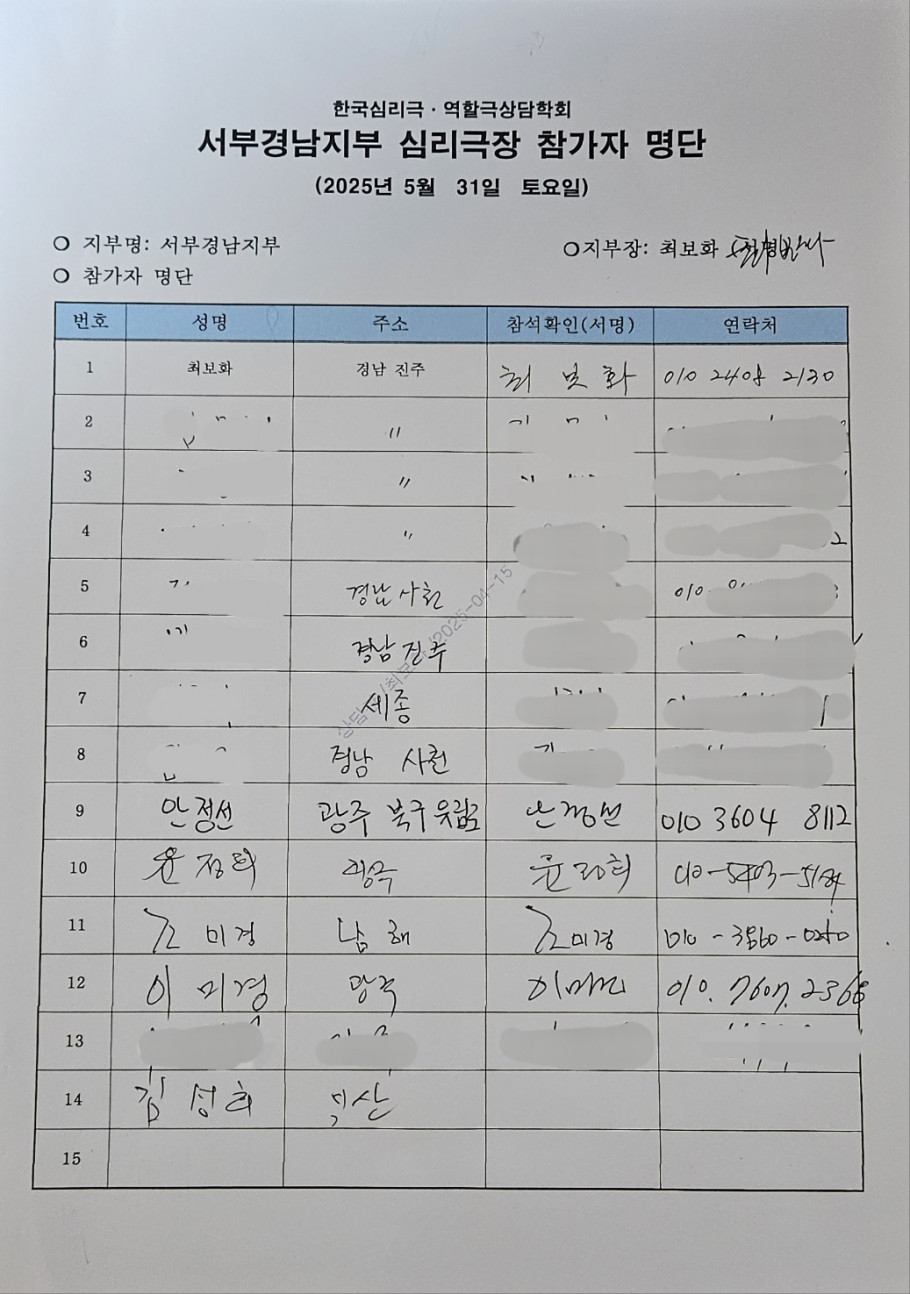 한국심리극·역할극상담학회
서부경남지부 심리극장 참가자 명단
(2025년 5월 31일 토요일)
○ 지부명: 서부경남지부 ○지부장: 최보화
○ 참가자 명단
번호 성명 주소 참석확인(서명) 연락처
1 최보화 경남 진주 최보화 010 2408 2130
2 〃
3 〃
4 〃
5 경남 사천 010
6 경남 진주
7 세종
8 경남 사천
9 안정선 광주 북구 안정선 010 3604 8112
10 윤정희 윤정희
11 조미경 남해 조미경
12 이미경 광주 이미경 010. 7607. 2366
13
14 김성희
15
상담 /최보화/2025-04-15